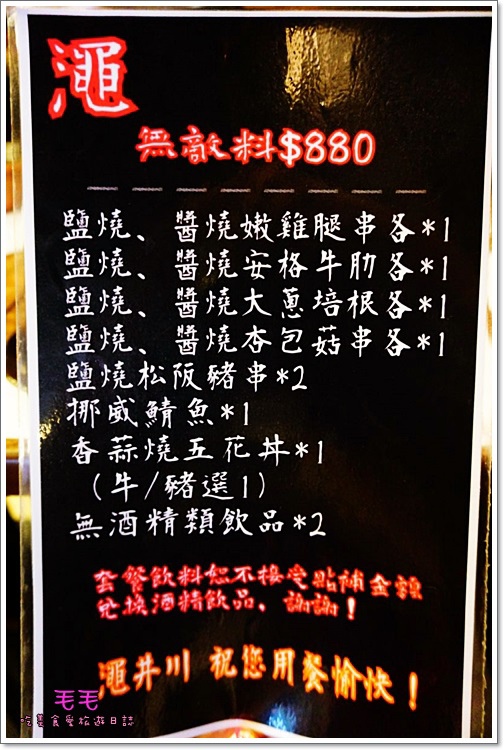 澠
無敵料$880
鹽燒、醬燒嫩雞腿串各*1
鹽燒、醬燒安格牛肋各*1
鹽燒、醬燒大蔥培根各*1
鹽燒、醬燒杏包菇串各*1
鹽燒松阪豬串*2
挪威鯖魚*1
香蒜燒五花丼*1
(牛/豬選1)
無酒精類飲品*2
套餐飲料恕不接受貼補金額
兌換酒精飲品,謝謝!
澠井川 祝您用餐愉快!
毛毛
吃美食愛旅遊日誌